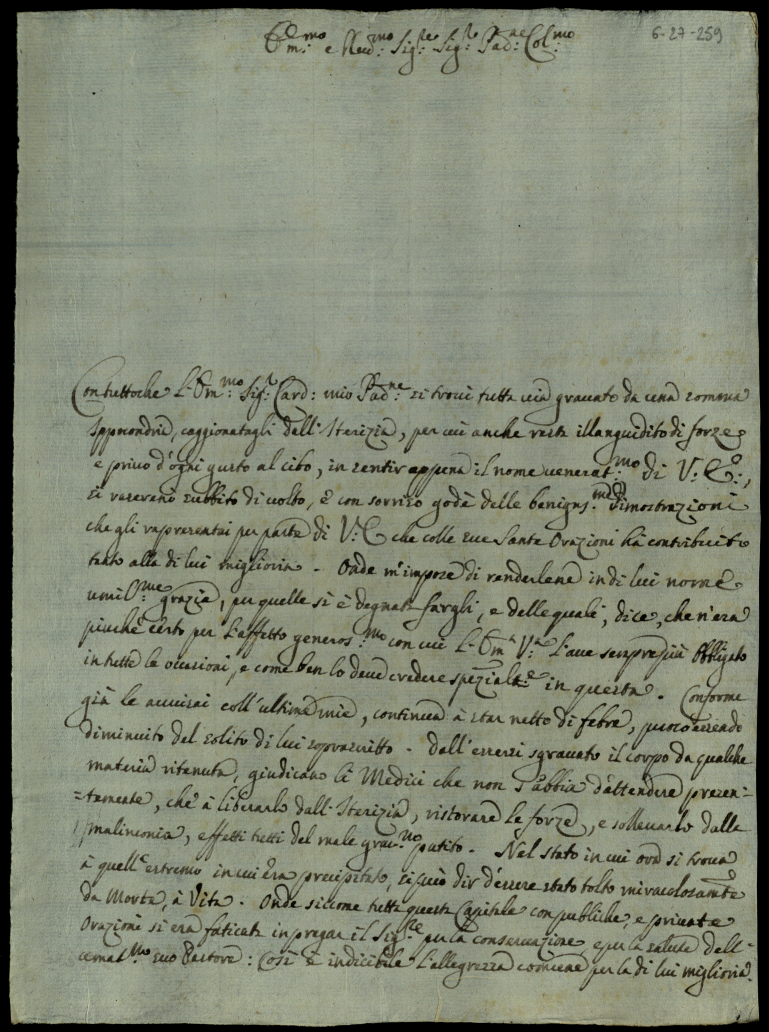 Em:mo e Rev:mo Sig:re Sig:re Pad:ne Col:mo
6-27-259
Contuttoche L'Em:mo Sig:r Card: mio Pad:ne si trovi tutta via gravato da una somma
Ippocondria, caggionatagli dall'Iterizia, per cui anche resta illanguidito di forze
e privo d'ogni gusto al cibo, in sentir appena il nome venerat:mo di V: E:,
si rasserenò subbito di volto, e con sorriso gode delle benigns:me dimostrazioni
che gli rappresentai per parte di V: E che colle sue Sante Orazioni ha contribuito
tanto alla di lui miglioria. Onde m'impose di renderlene in di lui nome
umil:me grazie, per quelle si è degnata fargli, e delle quali, dice, che n'era
piuche certo per l'affetto generos:mo con cui L'Em:a V:a l'ave sempre più obbligato
in tutte le occasioni, e come ben lo deve credere spezialte in questa. Conforme
già le avvisai coll'ultime mie, continua à star netto di febre, pur essendo
diminuito del solito di lui soprascritto. Dall'essersi sgravato il corpo da qualche
materia ritenuta, giudicano li Medici che non s'abbia d'attendere presen=
=tamente, che à liberarlo dall'Iterizia, ristorare le forze, e sollevarlo dalle
malinconia, effetti tutti del male grav:mo patito. Nel stato in cui ora si trova
à quell'estremo in cui era precipitato, si può dir d'essere stato tolto miracolosamte
da Morte, à Vita. Onde siccome tutta questa Capitale con publiche, e private
Orazioni si era faticata in pregar il Sig:re per la conservazione, e per la salute dell'
emat:mo suo Pastore: Così è indicibile l'allegrezza comune per la di lui miglioria.